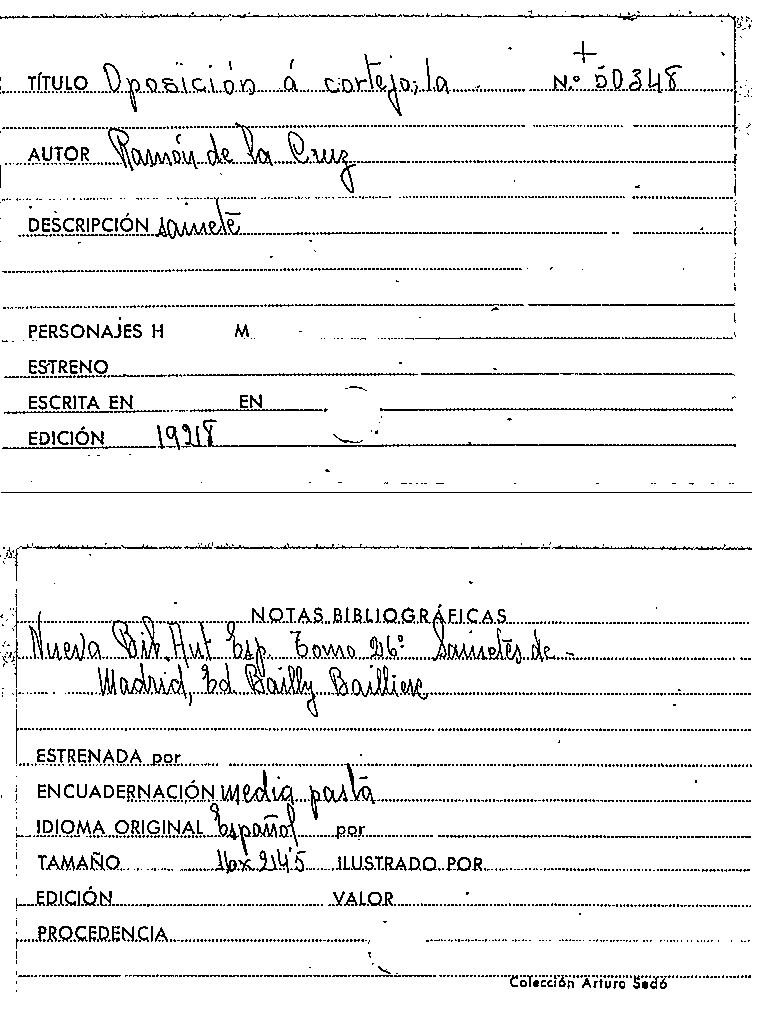 +
TÍTULO Oposición á cortejo, la N.º 50348
AUTOR Ramón de la Cruz
DESCRIPCIÓN sainete
PERSONAJES H M
ESTRENO
ESCRITA EN EN
EDICIÓN 1928
NOTAS BIBLIOGRÁFICAS
Nueva Bib. Aut Esp. Tomo 26º Sainetes de -
Madrid, Ed. Bailly Bailliere
ESTRENADA por
ENCUADERNACIÓN media pasta
IDIOMA ORIGINAL Español por
TAMAÑO 16x24'5 ILUSTRADO POR
EDICIÓN VALOR
PROCEDENCIA
Colección Arturo Sedó